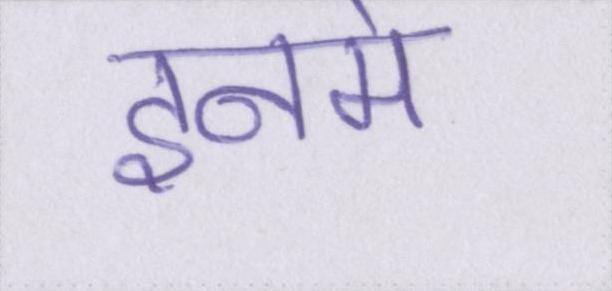 इनमे